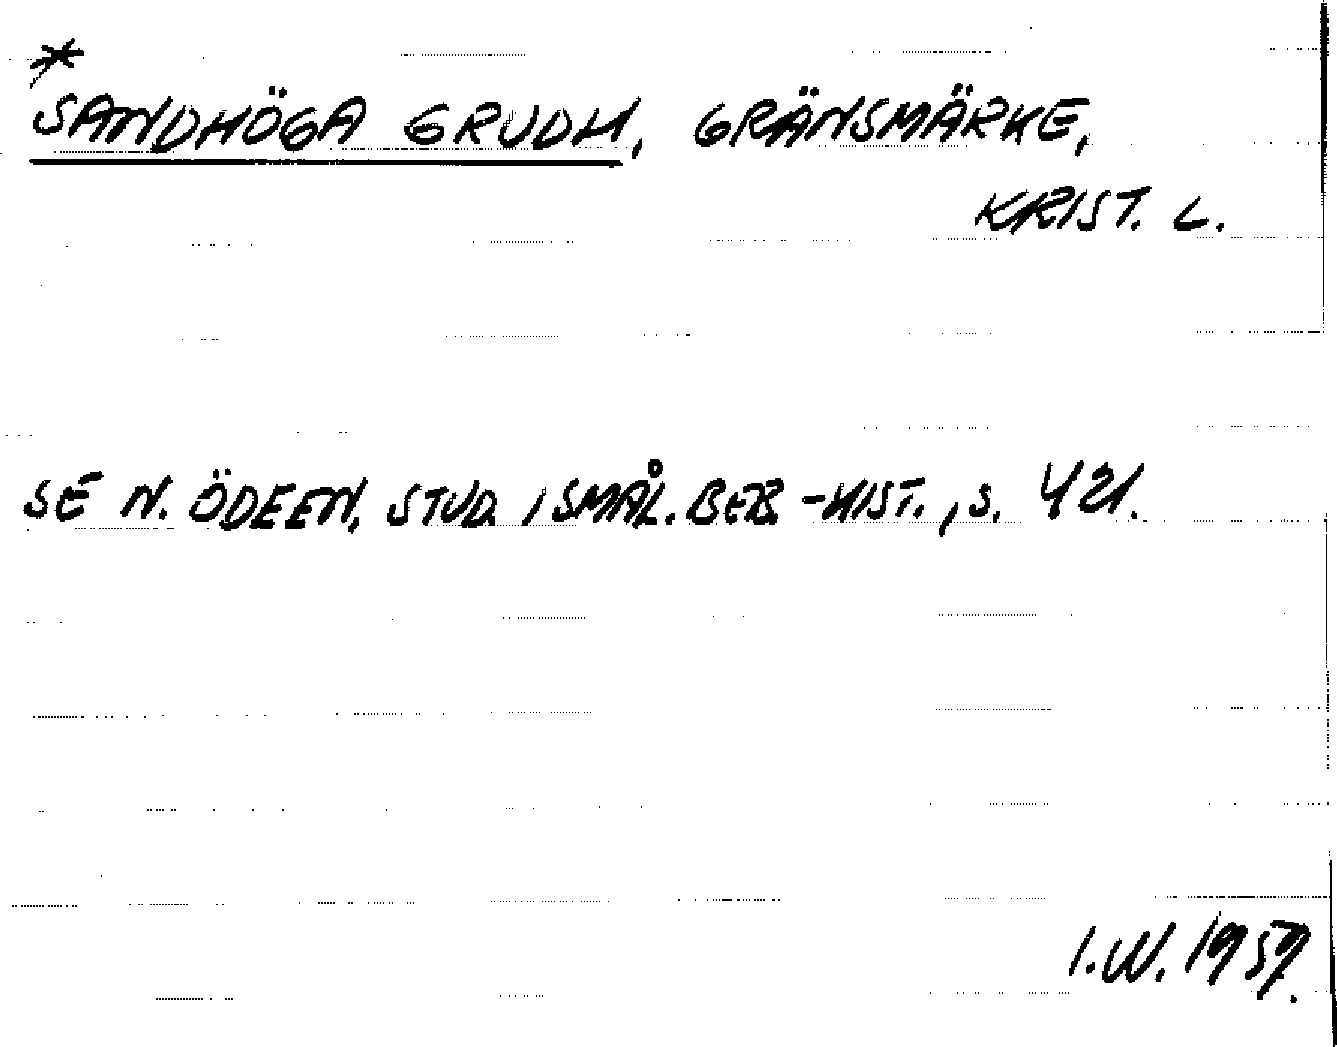 *
SANDHÖGA GRUDH, GRÄNSMÄRKE,
KRIST. L.
SE N. ÖDEEN, STUD. I SMÅL. BEB.-HIST., S. 421.
I.W. 1959.